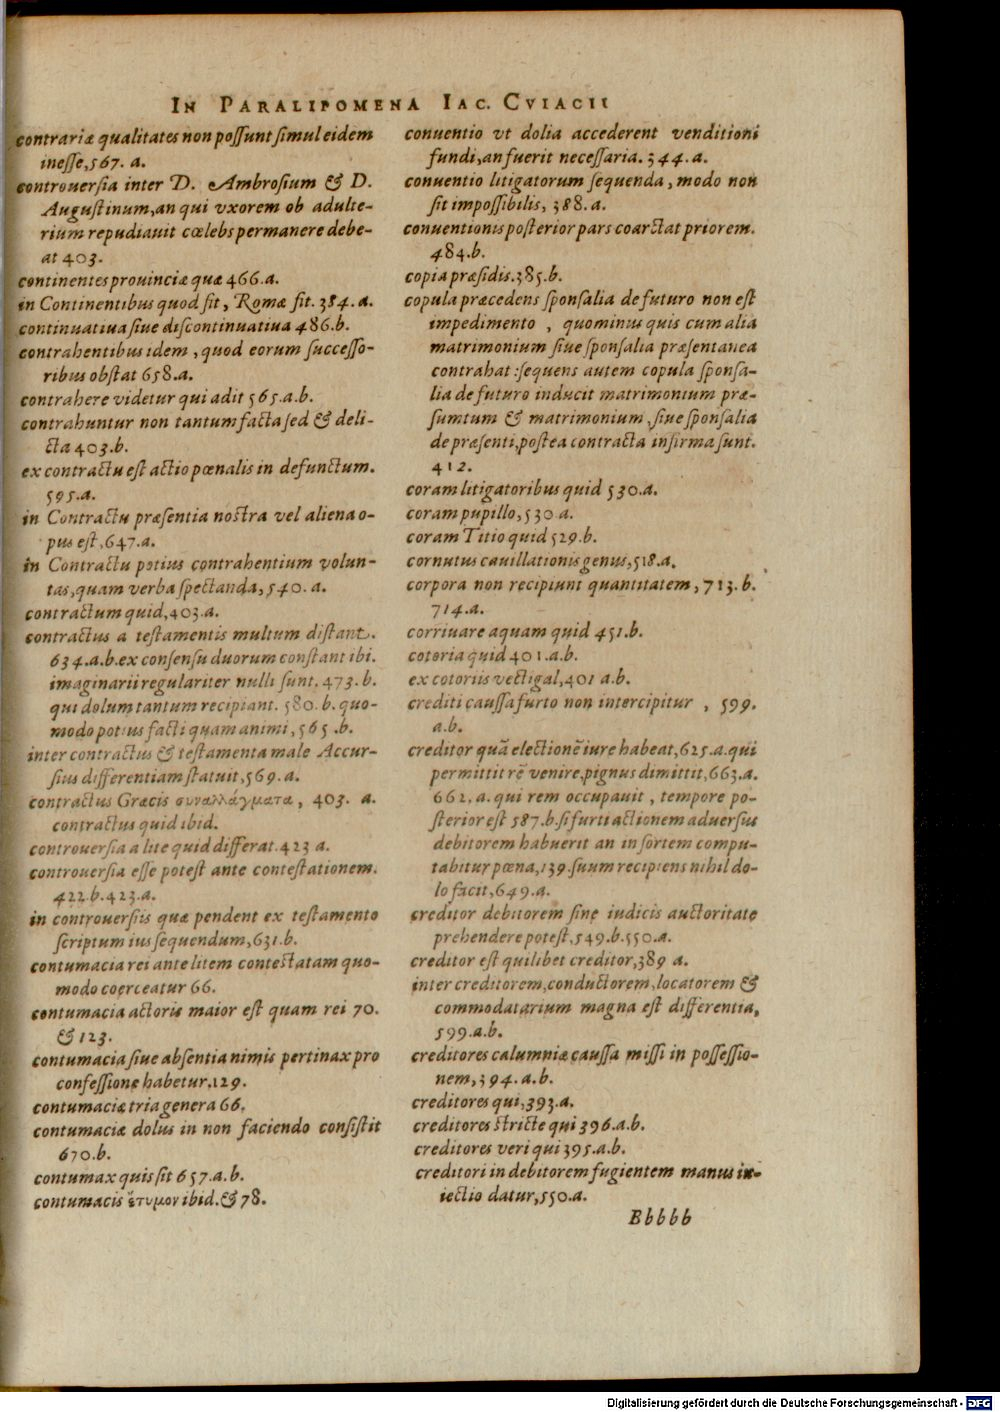 IN PARALIPOMENA IAC. CVIACII
contrariæ qualitates non possunt simul eidem
inesse, 567. a.
controuersia inter D. Ambrosium & D.
Augustinum, an qui vxorem ob adulte-
rium repudiauit cœlebs permanere debe-
at 403.
continentes prouinciæ quæ 466. a.
in Continentibus quod fit, Romæ fit. 384. a.
continuatiua siue discontinuatiua 486. b.
contrahentibus idem, quod eorum successo-
ribus obstat 658. a.
contrahere videtur qui adit 565. a. b.
contrahuntur non tantum facta sed & deli-
cta 403. b.
ex contractu est actio pœnalis in defunctum.
595. a.
in Contractu præsentia nostra vel aliena o-
pus est, 647. a.
in Contractu potius contrahentium volun-
tas, quam verba spectanda, 540. a.
contractum quid, 403. a.
contractus a testamentis multum distant.
634. a. b. ex consensu duorum constant ibi.
imaginarii regulariter nulli sunt. 473. b.
qui dolum tantum recipiant. 580. b. quo-
modo potius facti quam animi, 565. b.
inter contractus & testamenta male Accur-
sius differentiam statuit, 569. a.
contractus Græcis συναλλάγματα, 403. a.
contractus quid ibid.
controuersia a lite quid differat. 423 a.
controuersia esse potest ante contestationem.
422. b. 423. a.
in controuersiis quæ pendent ex testamento
scriptum ius sequendum, 631. b.
contumacia rei ante litem contestatam quo-
modo coerceatur 66.
contumacia actoris maior est quam rei 70.
& 123.
contumacia siue absentia nimis pertinax pro
confessione habetur. 129.
contumaciæ tria genera 66.
contumaciæ dolus in non faciendo consistit
670. b.
contumax quis sit 657. a. b.
contumacis ἔτυμον ibid. & 78.
conuentio vt dolia accederent venditioni
fundi, an fuerit necessaria. 344. a.
conuentio litigatorum sequenda, modo non
sit impossibilis, 388. a.
conuentionis posterior pars coarctat priorem.
484. b.
copia præsidis. 385. b.
copula præcedens sponsalia de futuro non est
impedimento, quominus quis cum alia
matrimonium siue sponsalia præsentanea
contrahat: sequens autem copula sponsa-
lia de futuro inducit matrimonium præ-
sumtum & matrimonium, siue sponsalia
de præsenti, postea contracta infirma sunt.
412.
coram litigatoribus quid 530. a.
coram pupillo, 530 a.
coram Titio quid 529. b.
cornutus cauillationis genus, 518. a.
corpora non recipiunt quantitatem, 713. b.
714. a.
corriuare aquam quid 451. b.
cotoria quid 401. a. b.
ex cotoriis vectigal, 401 a. b.
crediti caussa furto non intercipitur, 599.
a. b.
creditor quā electionē iure habeat, 625. a. qui
permittit rē venire, pignus dimittit, 663. a.
662. a. qui rem occupauit, tempore po-
sterior est 587. b. si furti actionem aduersus
debitorem habuerit an in sortem compu-
tabitur pœna, 139. suum recipiens nihil do-
lo facit, 649. a.
creditor debitorem sine iudicis auctoritate
prehendere potest, 549. b. 550. a.
creditor est quilibet creditor, 389 a.
inter creditorem, conductorem, locatorem &
commodatarium magna est differentia,
599. a. b.
creditores calumniæ caussa missi in possessio-
nem, 394. a. b.
creditores qui, 393. a.
creditores stricte qui 396. a. b.
creditores veri qui 395. a. b.
creditori in debitorem fugientem manus in-
iectio datur, 550. a.
Bbbbb
Digitalisierung gefördert durch die Deutsche Forschungsgemeinschaft - DFG